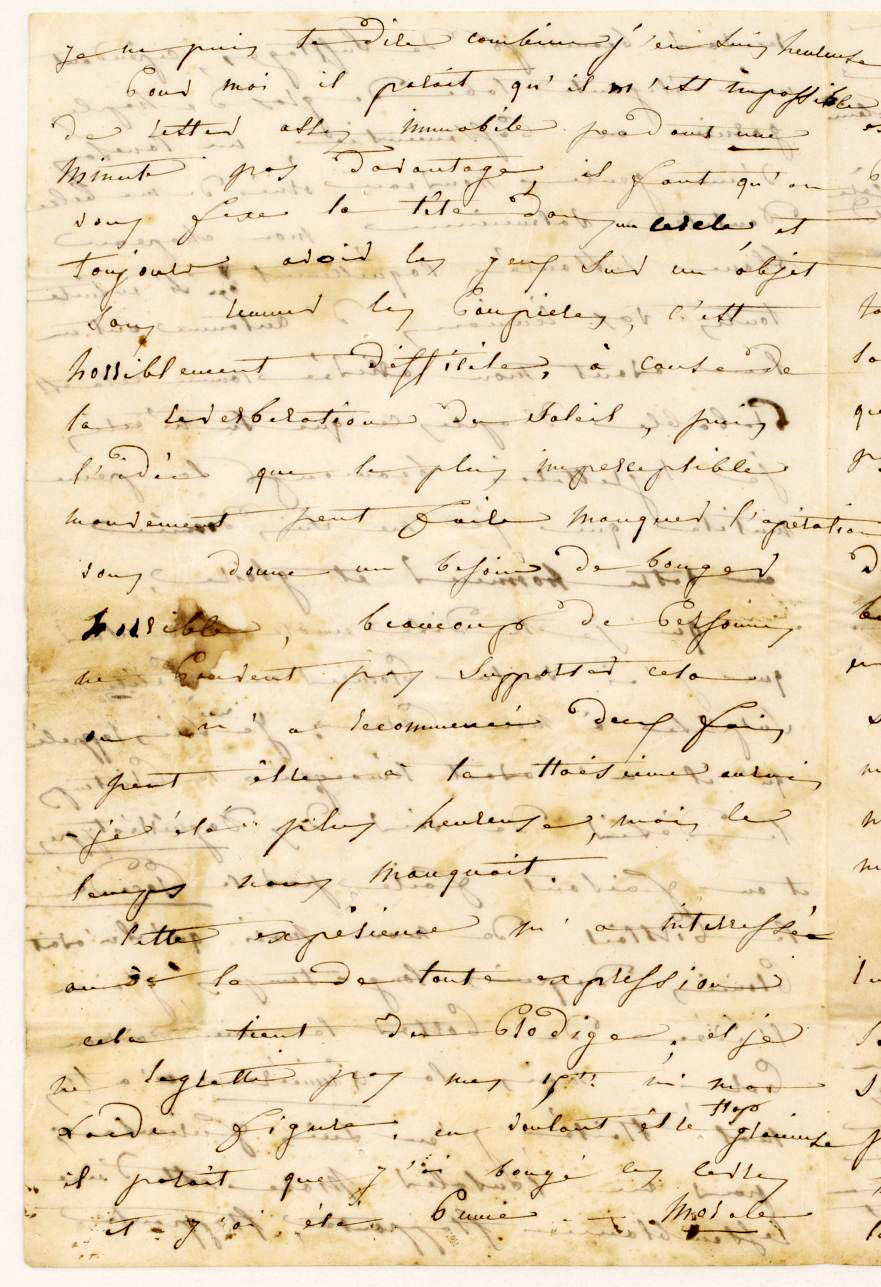 je ne puis te dire combien j'en suis heureuse
Pour moi il parait qu'il m'est impossible
de rester assez immobile pendant une
minute pas davantage il faut qu'on
vous fixe la tête dans un cercle et
toujours avoir les yeux sur un objet
sans remuer les Paupieres, c'est
horriblement difficile, à cause de
la reverberation du Soleil, puis
l'idée que le plus imperceptible
mouvement peut faire manquer l'opération
vous donne un besoin de bouger
horrible, beaucoup de Personnes
ne Peuvent pas supporter cela
on m'a recommencée deux fois
peut être à la troisieme aurais
je été plus heureuse, mais le
temps nous manquait.
Cette expérience m'a interressée
au de la de toute expression
cela tient du Prodige, et je
ne regrette pas mes ni ma
Laide figure, en voulant être trop gracieuse
il parait que j'ai bougé les levres
et j'ai été Punie — Morale